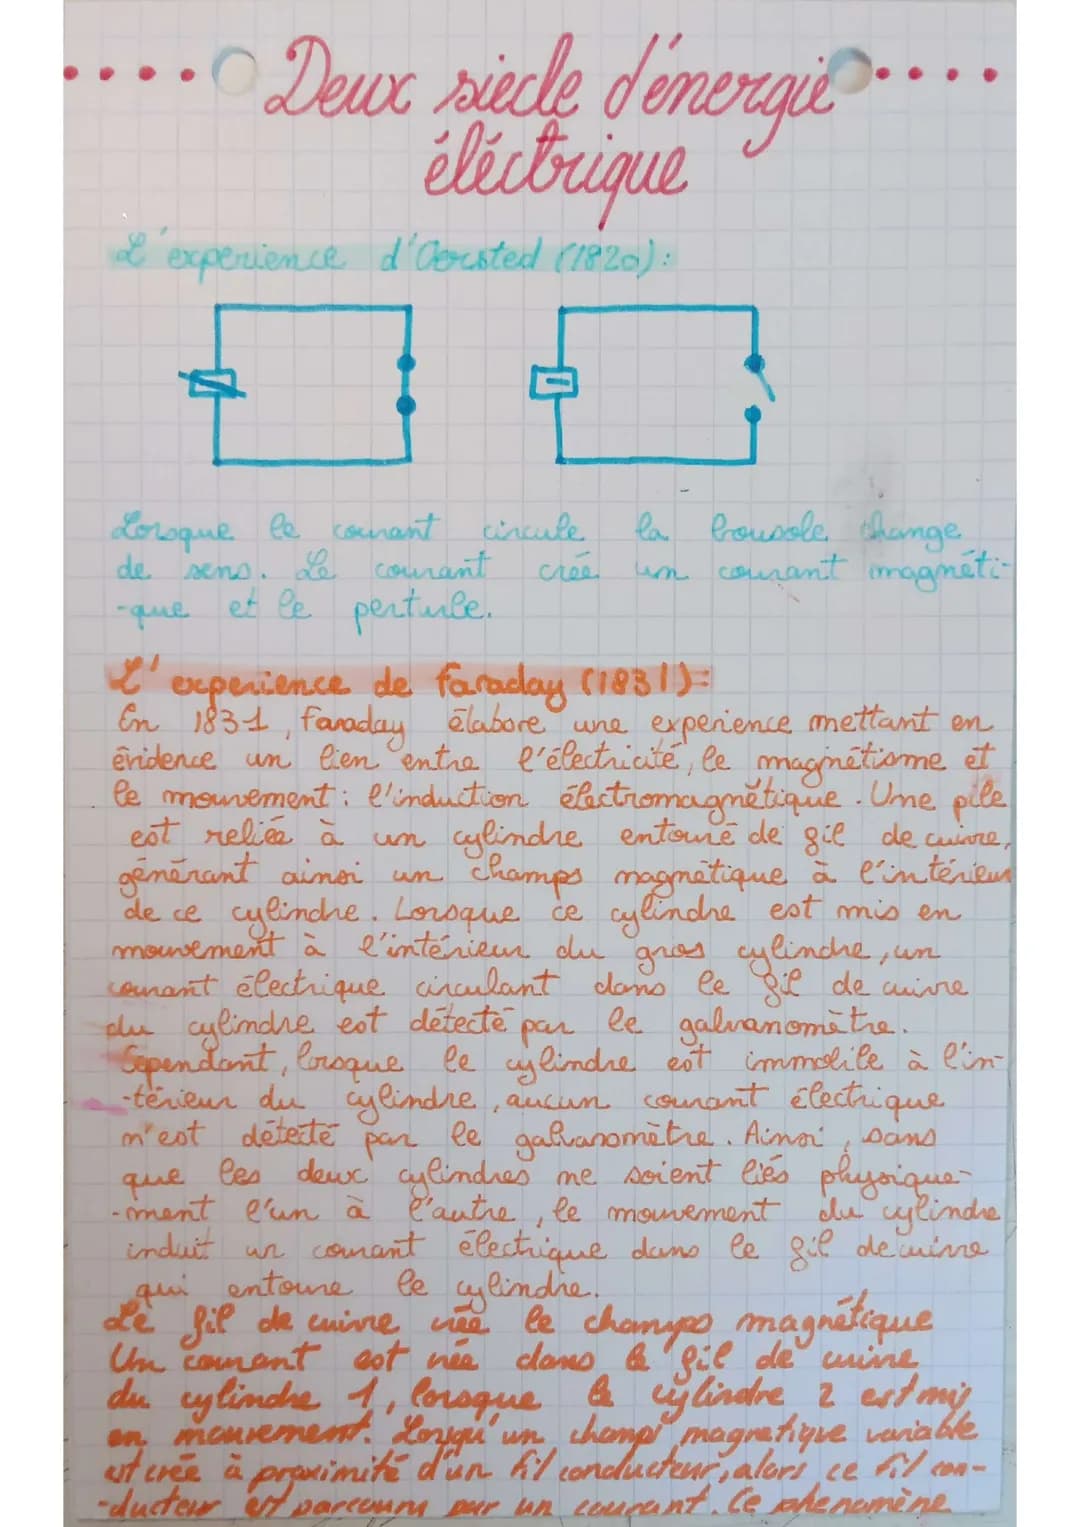 Deux siecle d'énergie
éléctrique
L'experience d'Oersted (1820):
Lorsque le courant circule la bousole change
de sens. Le courant crée un courant magnéti-
-que et le perturbe.
L'experience de faraday (1831):
En 1831, faraday élabore une experience mettant en
évidence un lien entre l'électricité, le magnétisme et
le mouvement: l'induction électromagnétique. Une pile
est reliée à un cylindre entouré de fil de cuivre,
générant ainsi un champs magnétique à l'intérieur
de ce cylindre. Lorsque ce cylindre est mis en
mouvement à l'intérieur du gros cylindre, un
courant électrique circulant dans le fil de cuivre
du cylindre est détecté par le galvanomètre.
Cependant, lorsque le cylindre est immobile à l'in-
-térieur du cylindre, aucun courant électrique
n'est détecté par le galvanomètre. Ainsi, sans
que les deux cylindres ne soient liés physique-
-ment l'un à l'autre, le mouvement du cylindre
induit un courant électrique dans le fil de cuivre
qui entoure le cylindre.
Le fil de cuivre crée le champs magnétique
Un courant est née dans le fil de cuivre
du cylindre 1, lorsque le cylindre 2 est mis
en mouvement. Lorsqu'un champs magnetique variable
est crée à proximité d'un fil conducteur, alors ce fil con-
-ducteur est parcouru par un courant. Ce phenomène